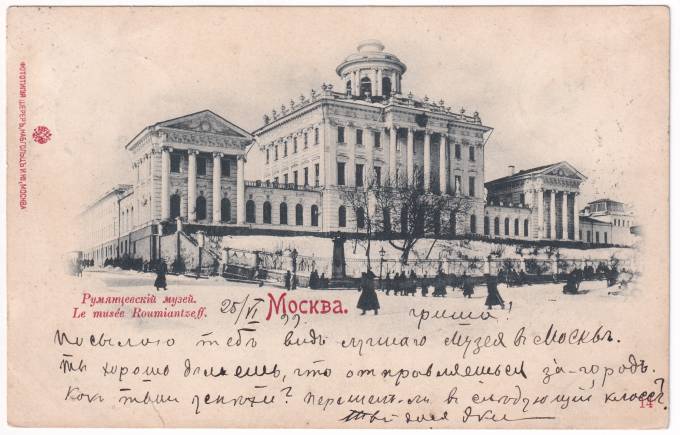 ФОТОТИПІЯ ШЕРЕРЪ, НАБГОЛЬЦЪ И Кº, МОСКВА
Румянцевскій музей.
Le musée Roumiantzeff.
Москва.
25/VI 99.
Гриша!
Посылаю тебѣ видъ лучшаго музея в Москвѣ.
ты хорошо дѣлаешь, что отправляешься за-городъ.
Какъ твои успѣхи? перешелъ-ли в слѣдующій классъ?
14